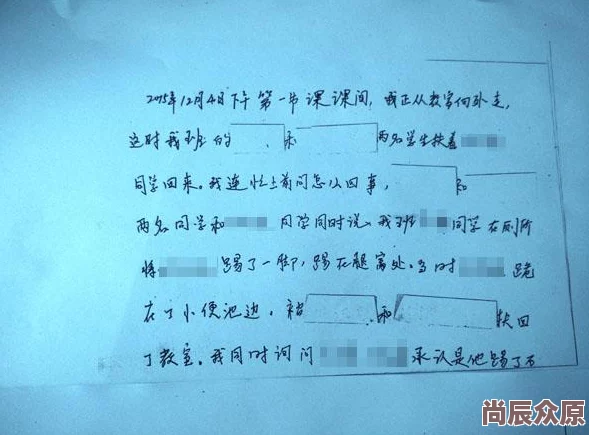 2015年12月4日下午第一节课课间,我正从教室向外走,
这时我班的 、 和 两名学生扶着
同学回来。我连忙上前问怎么回事, 和
两名同学和 同学同时说,我班 同学在厕所
将 踢了一脚,踢在腿窝处。当时 跪
在了小便池边,被 和 扶回
了教室。我同时询问 承认是他踢了
尚辰众原